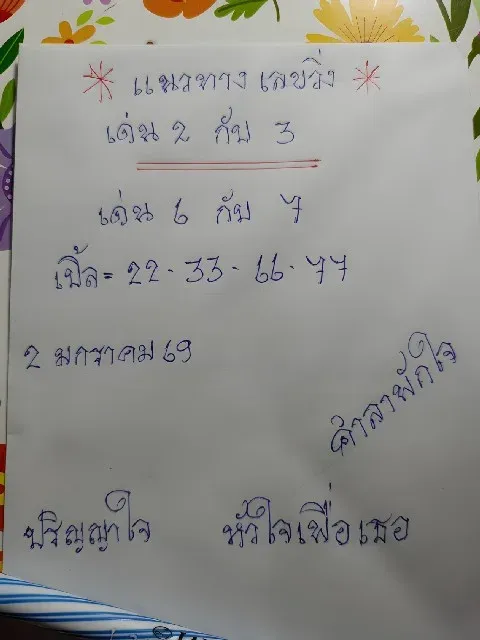 * แนวทาง เลขวิ่ง *
เด่น 2 กับ 3
เด่น 6 กับ 7
เบิ้ล = 22 - 33 - 66 - 77
2 มกราคม 69
ศาลาพักใจ
ปริญญาใจ หัวใจเพื่อเธอ